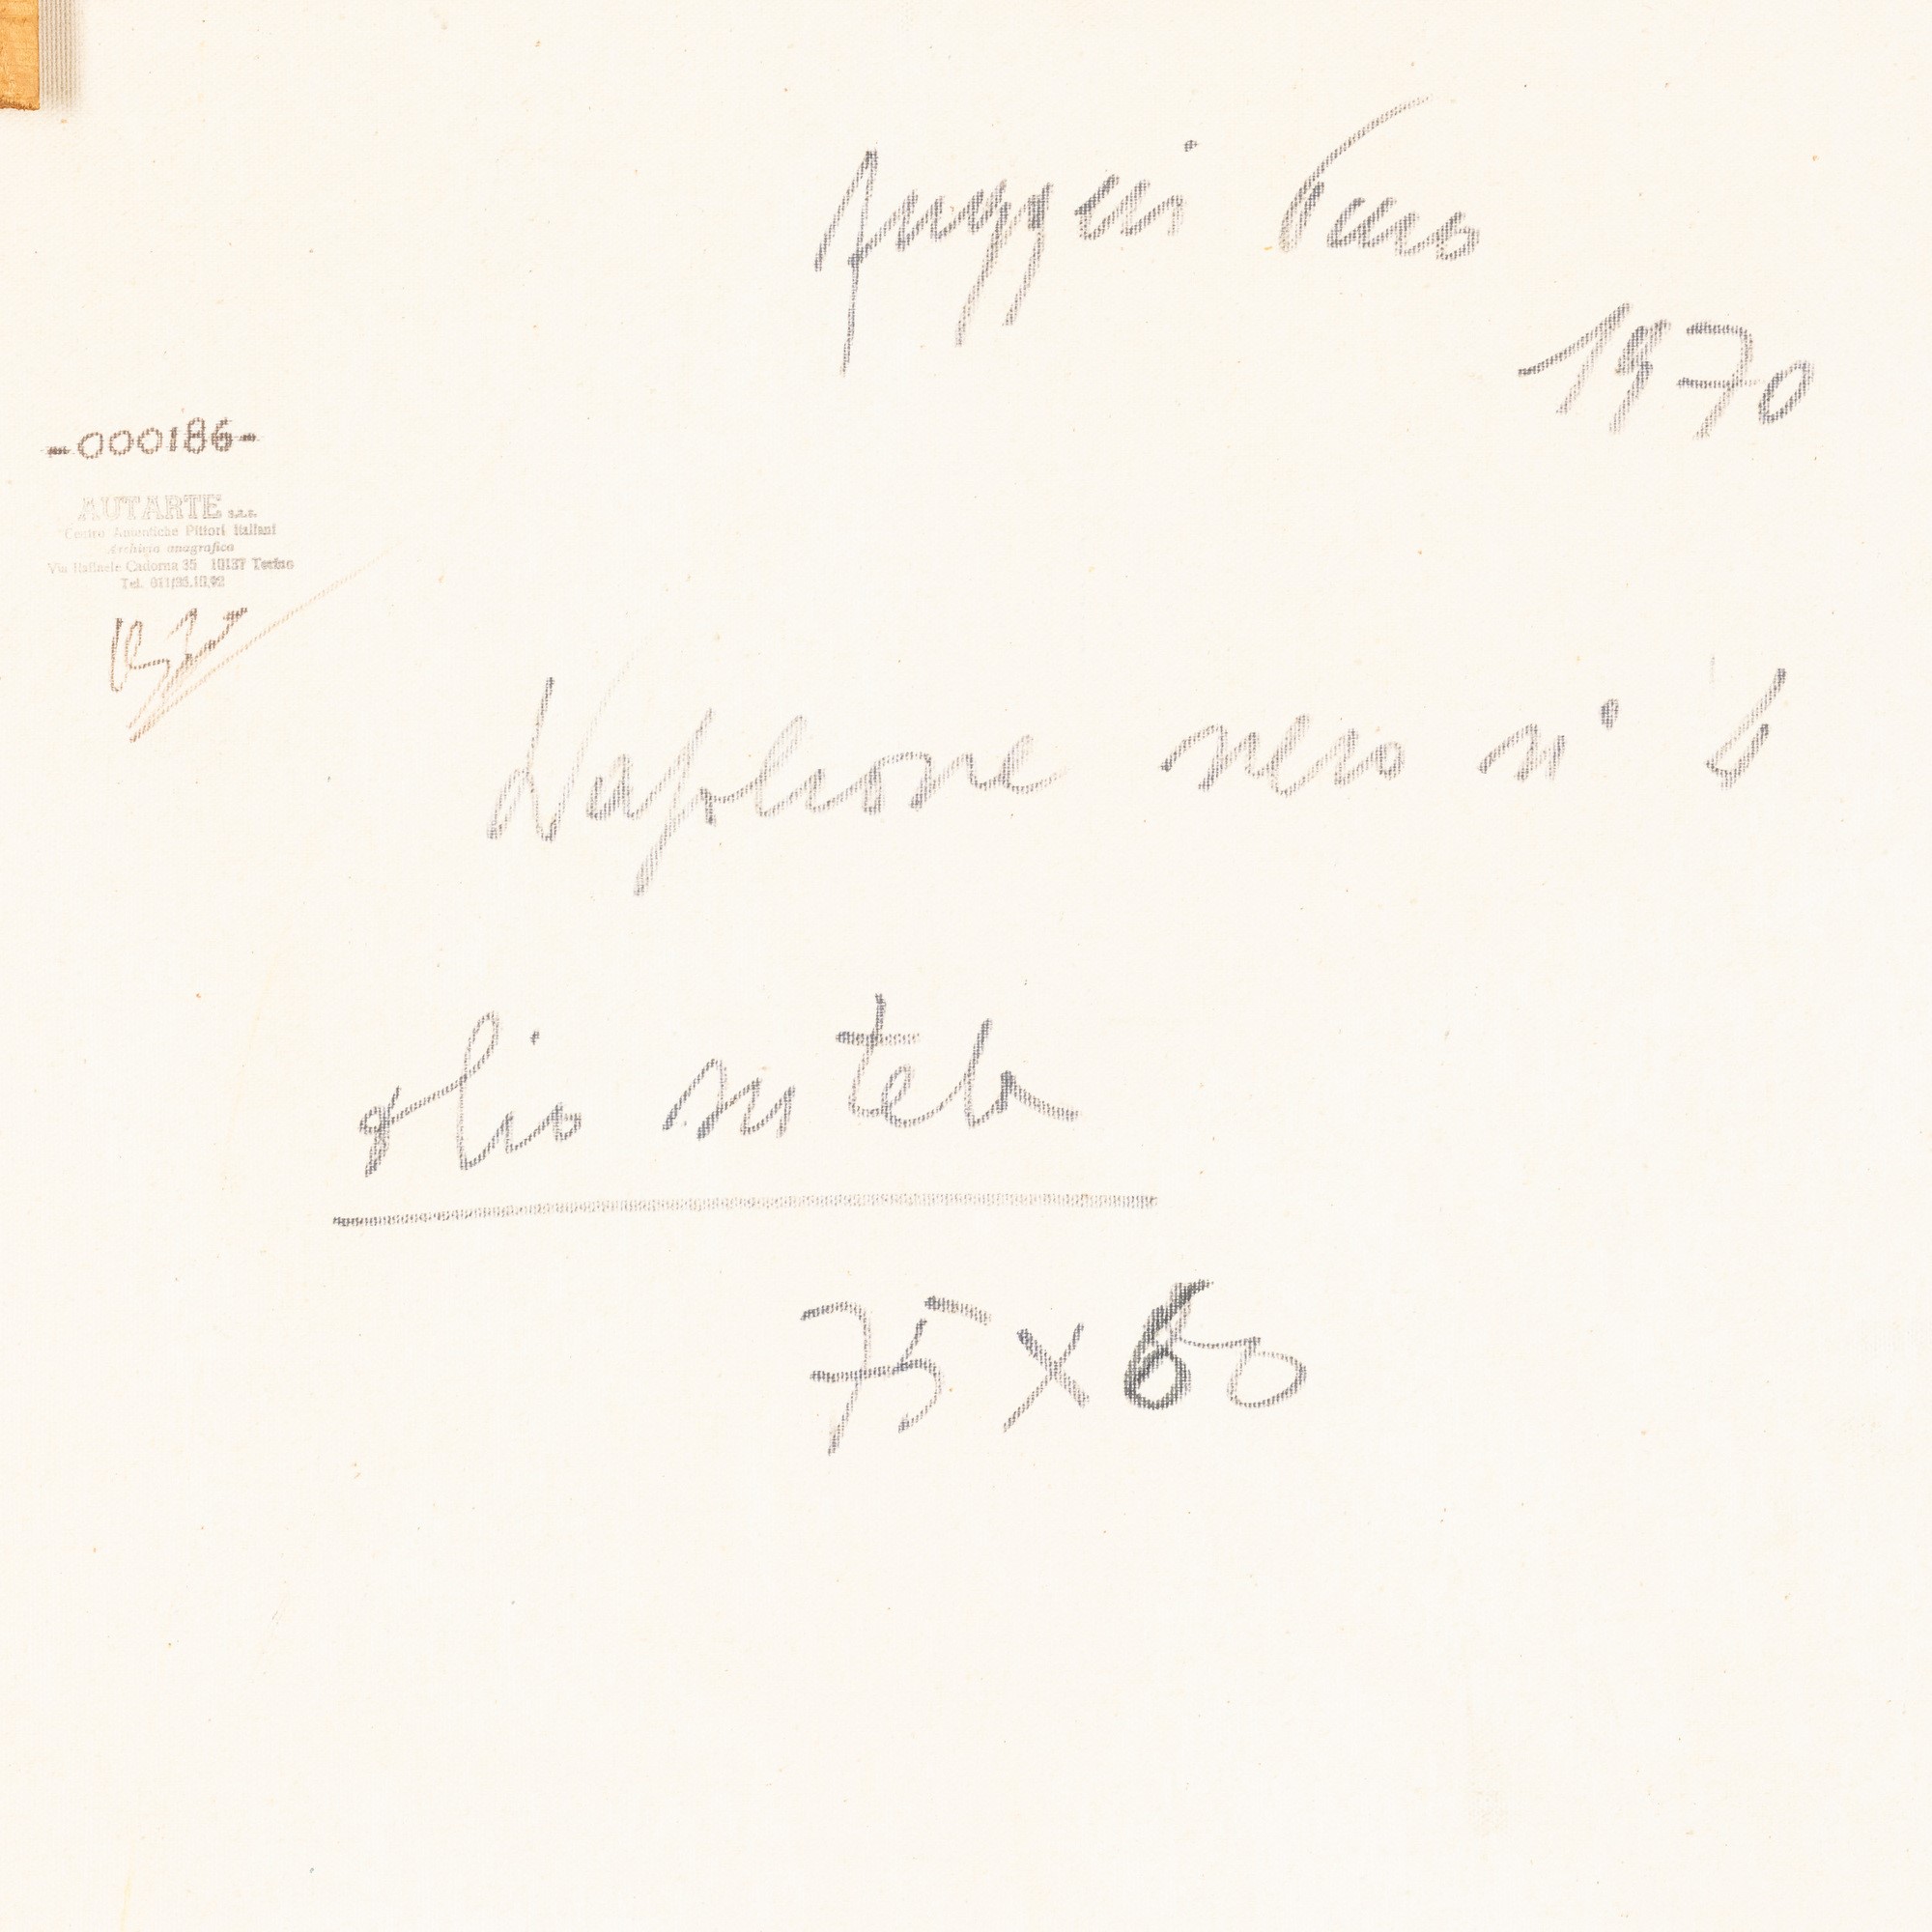 Ruggeri Piero
1970
-000186-
AUTARTE s.a.s.
Centro Autentiche Pittori Italiani
Archivio anagrafico
Via Raffaele Cadorna 35 10137 Torino
Tel. 011/35.10.92
Napoleone nero n° 6
olio su tela
75 x 60